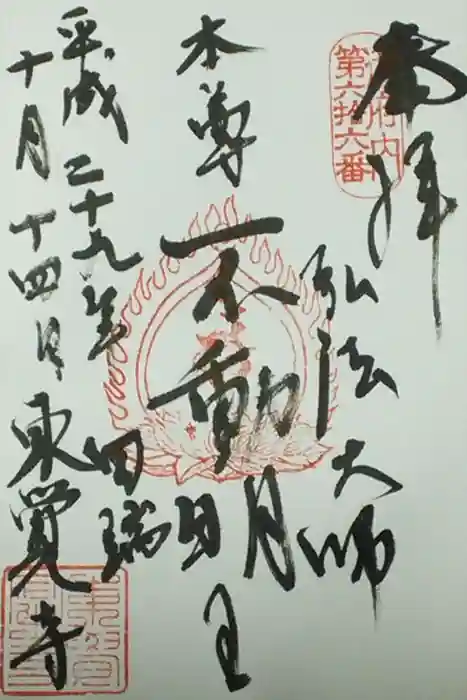 奉拝
御府内
第六拾六番
弘法大師
本尊 不動明王
平成二十九年 田端
十月十四日 東覚寺